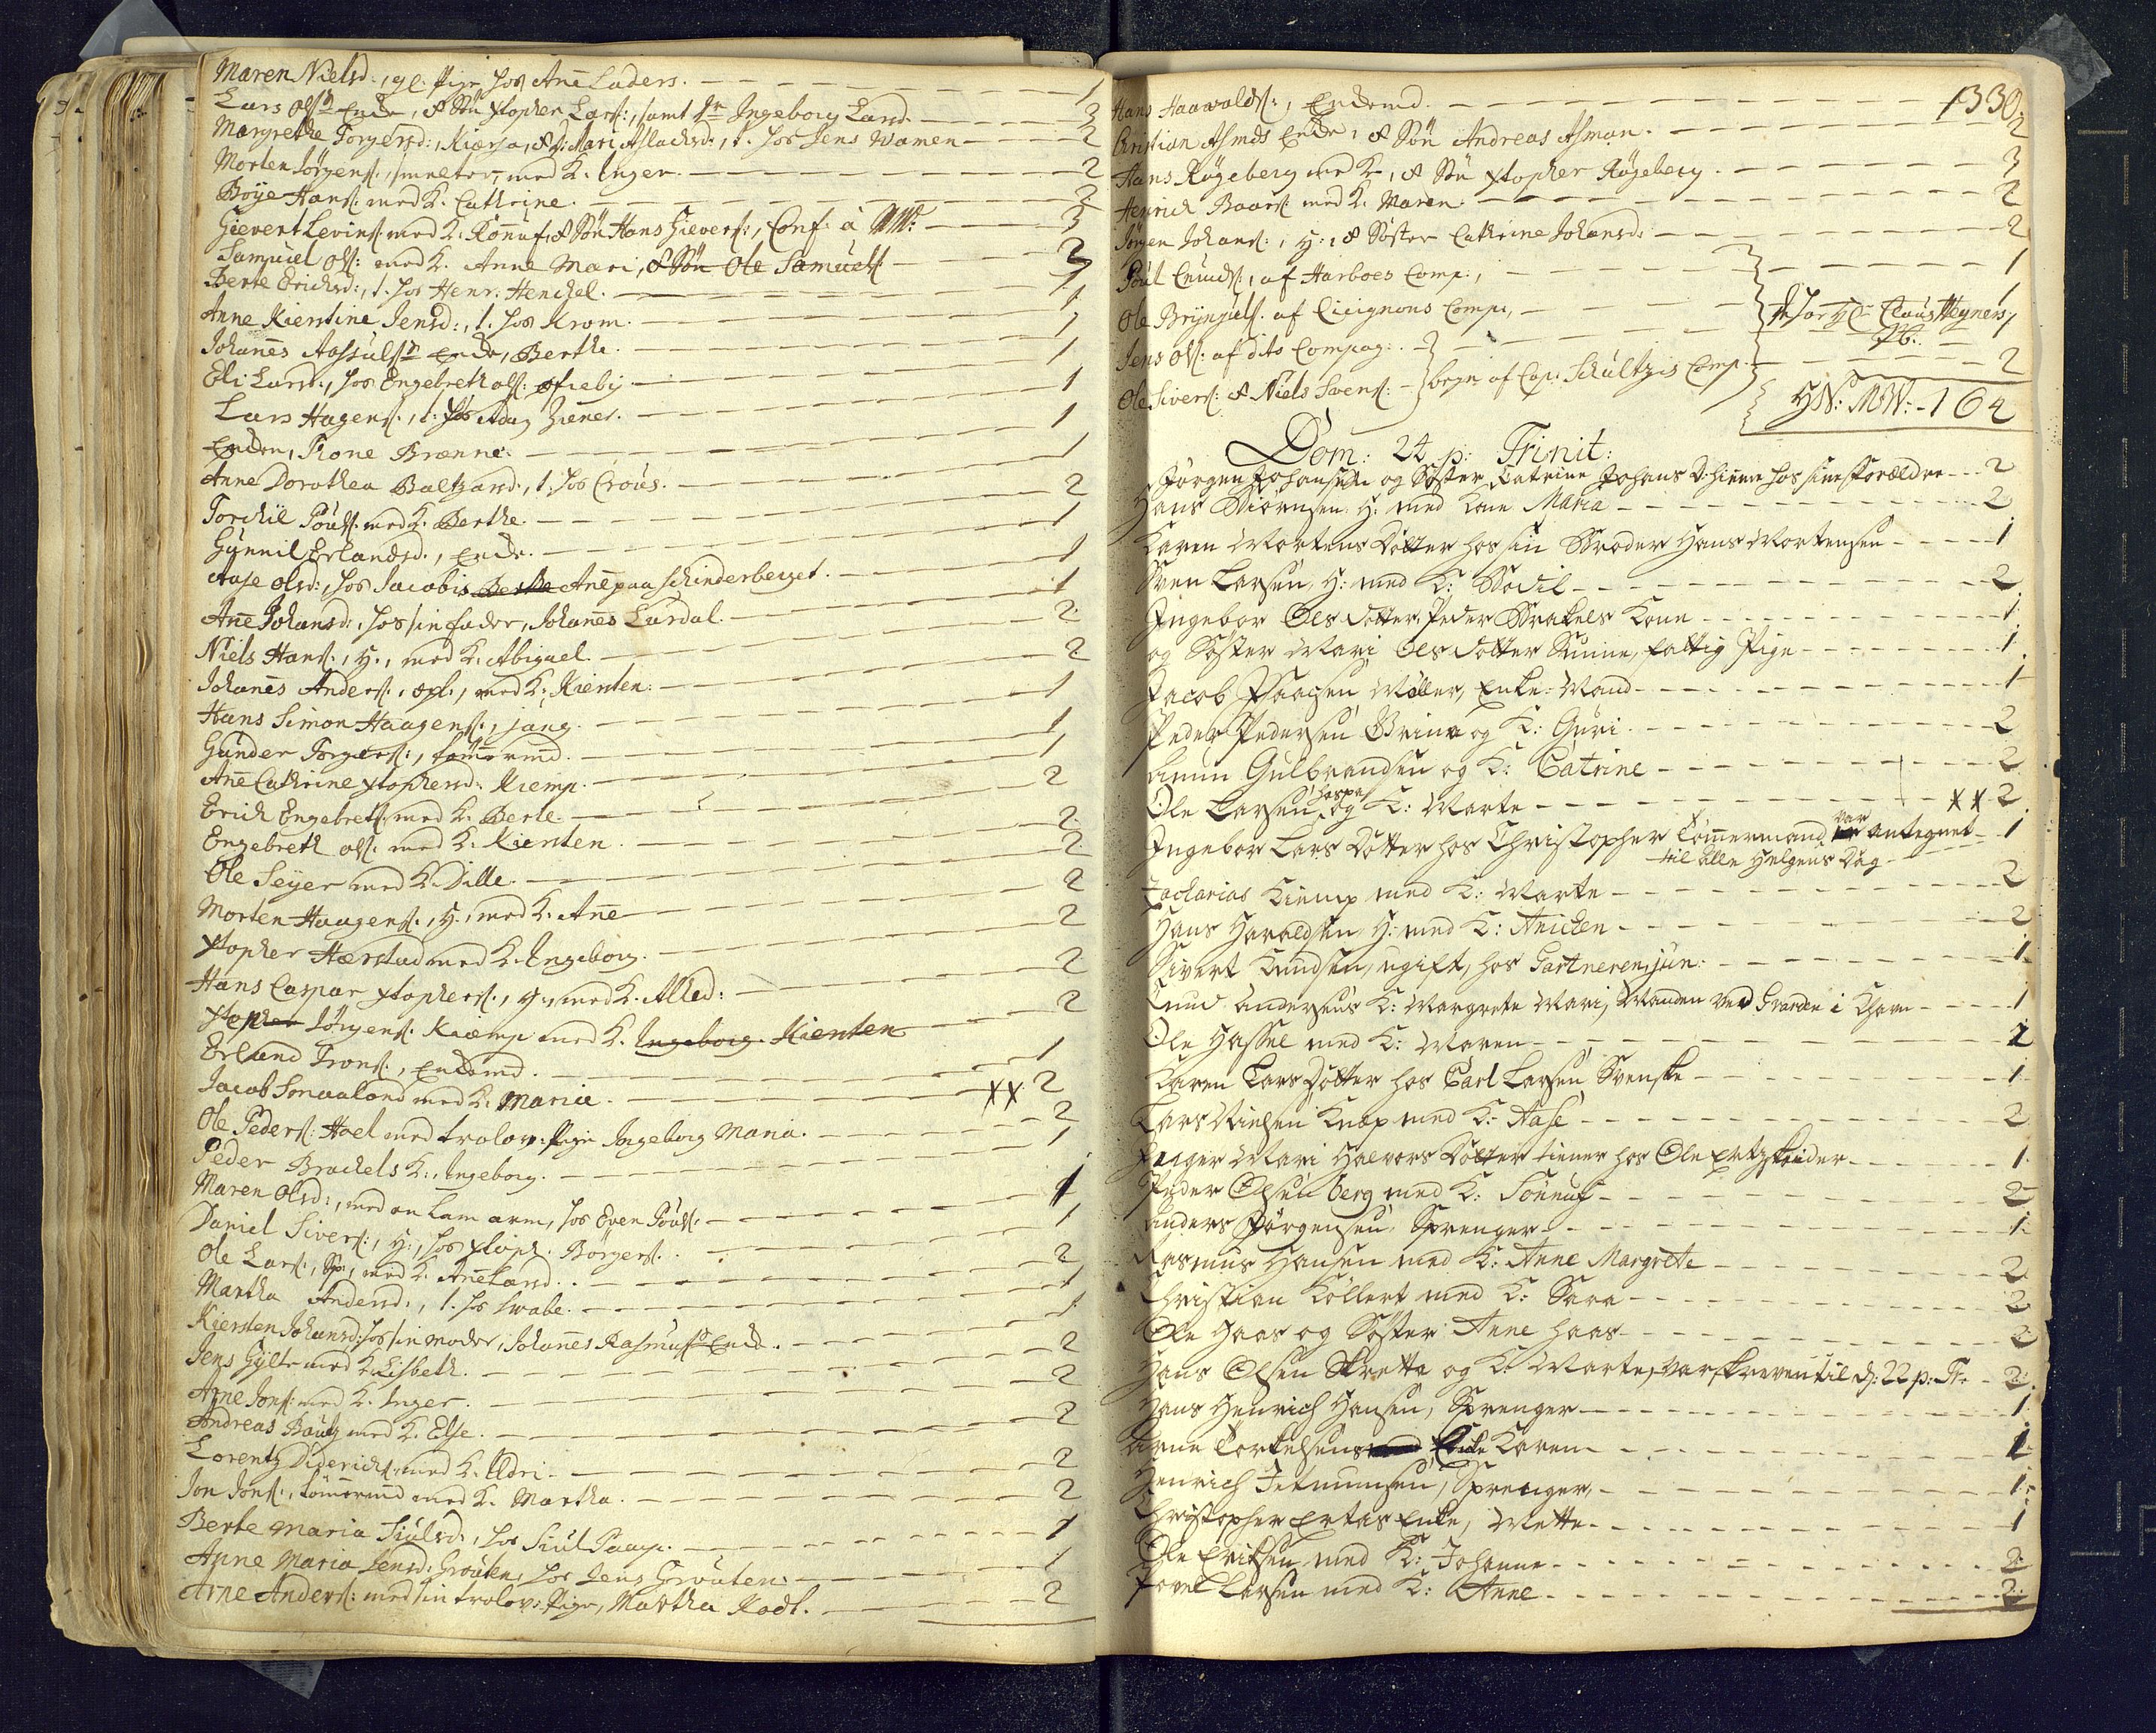 Maren Nielsd:, gl. Pige hos Anē Luders. 1
Lars Ols: Enke, & Sön Xtopher Lars:, samt Ingeborg Larsd. 3
Margrethe Torgersd:, Kiærja, & D: Mari Aslachsd:, t. hos Jens Wamen 2
Morten Jörgens:, smelter, med K. Inger. 2
Boÿe Hans: med K. Cathrine. 2
Gievert Levins: med K. Rōnnuf, & Sön Hans Gievers:, Conf: à MW: 3
Samuel Ols: med K. Anne Mari, & Sön Ole Samuels: 2
Berte Erichsd:, t. hos Henr. Henchel. 1
Anne Kierstine Jensd:, t. hos Krom. 1
Johanēs Enke, Berthe. 1
Eli Larsd:, hos Engebreth Ols: 1
Lars Hagens:, t. hos Ziener. 1
Enken, Rone Brænne. 1
Anne Dorothea Baltzarsd., t. hos Crous. 1
Torchil Pouls: med K. Berthe. 2
Gunnil Erlandsd., Enke. 1
Aase Olsd:, hos Jacobis Berthe Anē paa Schinderberget. 1
Anē Johansd:, hos sin fader, Johanēs Lurdal. 1
Niels Hans:, H., med K. Abiguel. 2
Johanēs Anders:, opl., med K. Kiersten. 2
Hans Simon Haagens:, jæng. 1
Gunder Torgers:, tömermd. 1
Anē Cathrine Xtophersd: Kiemp. 1
Erich Engebrets: med K. Berte. 2
Engebreth Ols: med K. Kiersten. 2
Ole Seÿer med K. Dille. 2
Morten Haagens:, H., med K. Anē 2
Xtopher Harstad med K. Ingeborg. 2
Hans Caspar Xtophers:, H., med K. Alhed: 2
Xtopher Jörgens: Kiæmp med K. Ingeborg. Kiersten 2
Erland Trons:, Enkemd. 1
Jacob Smaaland med K. Maria. XX 2
Ole Peders: Hoel med trolov: Pige Ingeborg Maria. 2
Peder Brachels K:, Ingeborg. 1
Maren Olsd:, med en lam arm, hos Even Pouls: 1
Daniel Sivers:, H:, hos Xtoph. Börgers:. 1
Ole Lars:, Sp:, med K. Anē Larsd. 2
Martha Andersd:, t. hos Swabe. 1
Kiersten Johansd: hos sin moder, Johanēs Rasmus: Enk. 1
Jens Gÿlte med K. Lisbeth. 2
Arne Jons: med K. Inger. 2
Andreas Bautz med K. Else. 2
Lorentz Diderichs: med K. Eldri. 2
Jon Jons:, tömermd med K. Martha. 2
Berte Maria Siulsd:, hos Siul Paap. 1
Anne Maria Jensd: Grouten, hos Jens Grouten: 1
Arne Anders: med sin trolov: Pige, Martha Rodt. 2
1330
Hans Haawalds:, Enkemd. 1
Christian Asmds Enke, & Sön Andreas Asman. 2
Hans Rögeberg med K, & Sön Xtopher Rögeberg. 3
Henrich Baars: med K. Maren. 2
Jörgen Johans:, H:, & Söster Cathrine Johansd: 2
Poul Cnuds:, af Harboes Comp:, 1
Ole Brÿnjuls. af Cicignons Comp:, 1
Jens Ols: af dito Compag:. Claus Heÿners,
Ole Sivers: & Niels Svens: begge af Cap: Schultzis Comp. 2
HN: MW: 164
Dom: 24 p: Trinit:
Jörgen Johansen og Söster Catrine Johans D: hiemme hos sine Forældre 2
Hans Biörnsen H: med Kone Maria 2
Karen Mortens Dotter hos sin Broder Hans Mortensen 1
Sven Larsen, H: med K: Bodil 2
Ingebor Ols dotter, Peder Brakels Kone 1
og Söster Mari Ols dotter Sunne, fattig Pige 1
Jacob Isaacsen Möller, Enke-Mand 1
Peder Pedersen Brine og K: Guri 2
Gulbrandsen og K: Catrine 2
Ole Larsen haspe og K: Marte XX 2
Ingebor Lars Dotter hos Christopher Tömermand var antegnet 1
til alle Helgens Dag
Zacharias Kiemp med K: Marte 2
Hans Haraldsen, H: med K: Anicken 2
Sivert Knudsen, ugift, hos Gartneren jun: 1
Knud Andersens K: Margrete Mari, Manden ved Garden i Khavn 1
Ole Hassel med K: Maren 2
Karen Lars Dotter hos Carl Larsen Svenske 1
Lars Nielsen Knap med K: Aase 2
Inger Mari Halvors Dotter tiener hos Ole Ertzskeider 1
Peder Olsen berg med K: Sönnuf 2
Anders Jörgensen, Sprenger 1
Rasmus Hansen med K: Anne Margrete 2
Christian Köllert med K: Sara 2
Ole Haas og Söster Anne haas 2
Hans Olsen Skrette og K: Marte, var skreven til D: 22 p: Tr. 2
Hans Henrich Hansen, Sprenger 1
Arne Torkelsens Enke Karen 1
Henrich Sprenger, 1
Christopher Ertas Enke, Mette 1
Ole Eriksen med K: Johanne 2
Povel Larsen med K: Anne 2